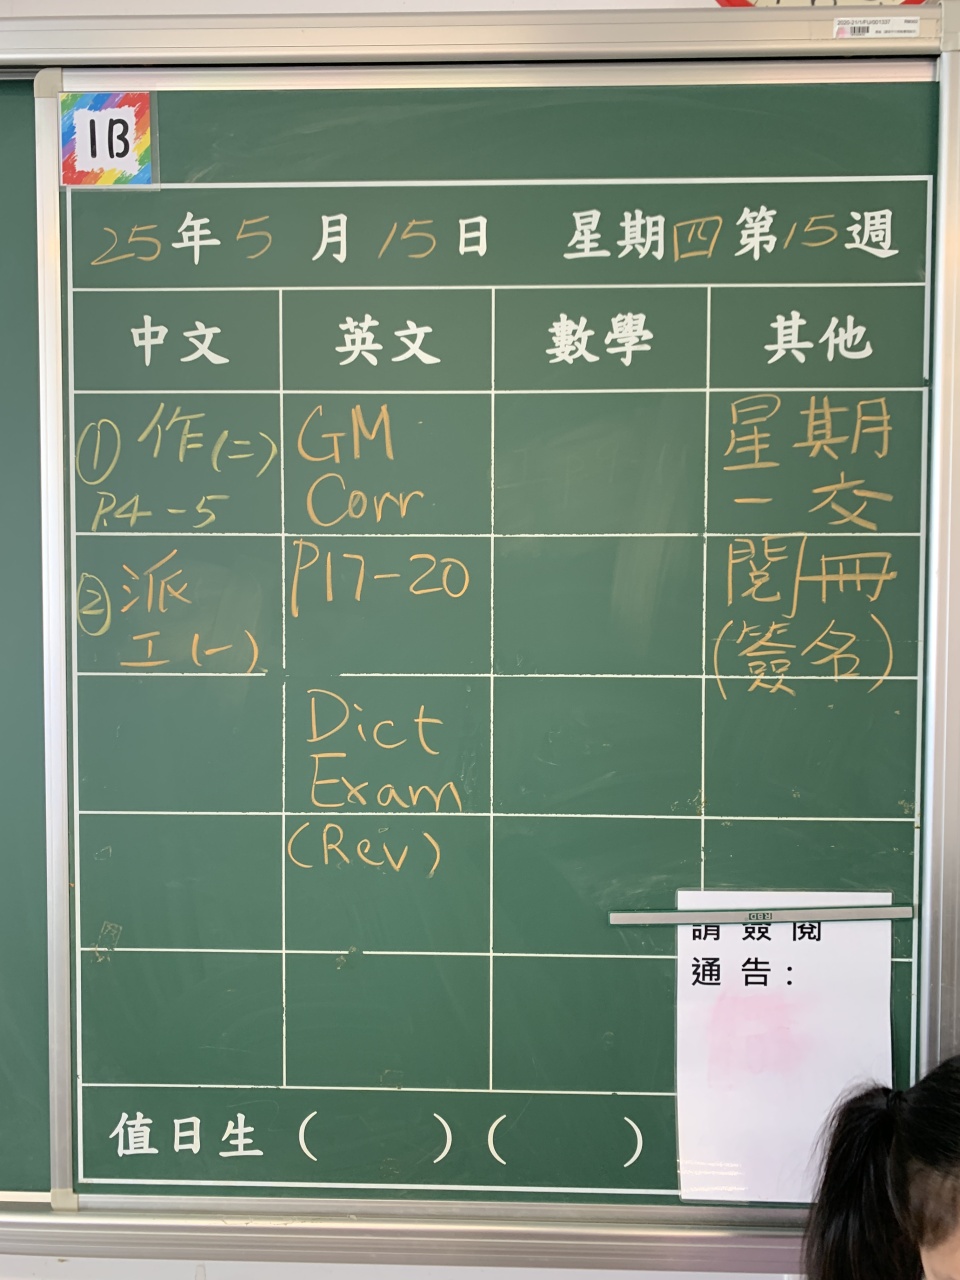 1B
25年5月15日 星期四第15週
中文 英文 數學 其他
① 作(二)
P.4-5
② 派
工(一)
GM
Corr
P17-20
Dict
Exam
(Rev)
星期
一交
閱冊
(簽名)
請簽閱
通告:
值日生( )( )